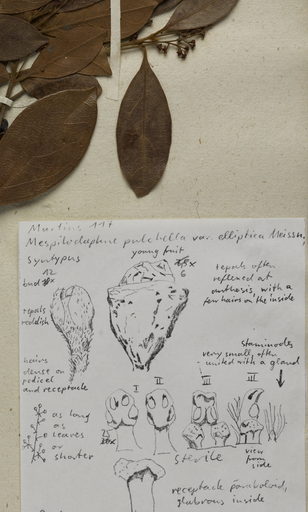 Martius 117
Mespilodaphne pulchella var. elliptica Meissn.
Syntypus
young fruit
12
bud
6
tepals often
reflexed at
anthesis with a
few hairs on the inside
tepals
reddish
staminodes
very small, often
united with a gland
hairs
dense on
pedicel
and receptacle
I
II
III
III
as long
as
leaves
or
shorter
sterile
view
from
side
receptacle paraboloid,
glabrous inside